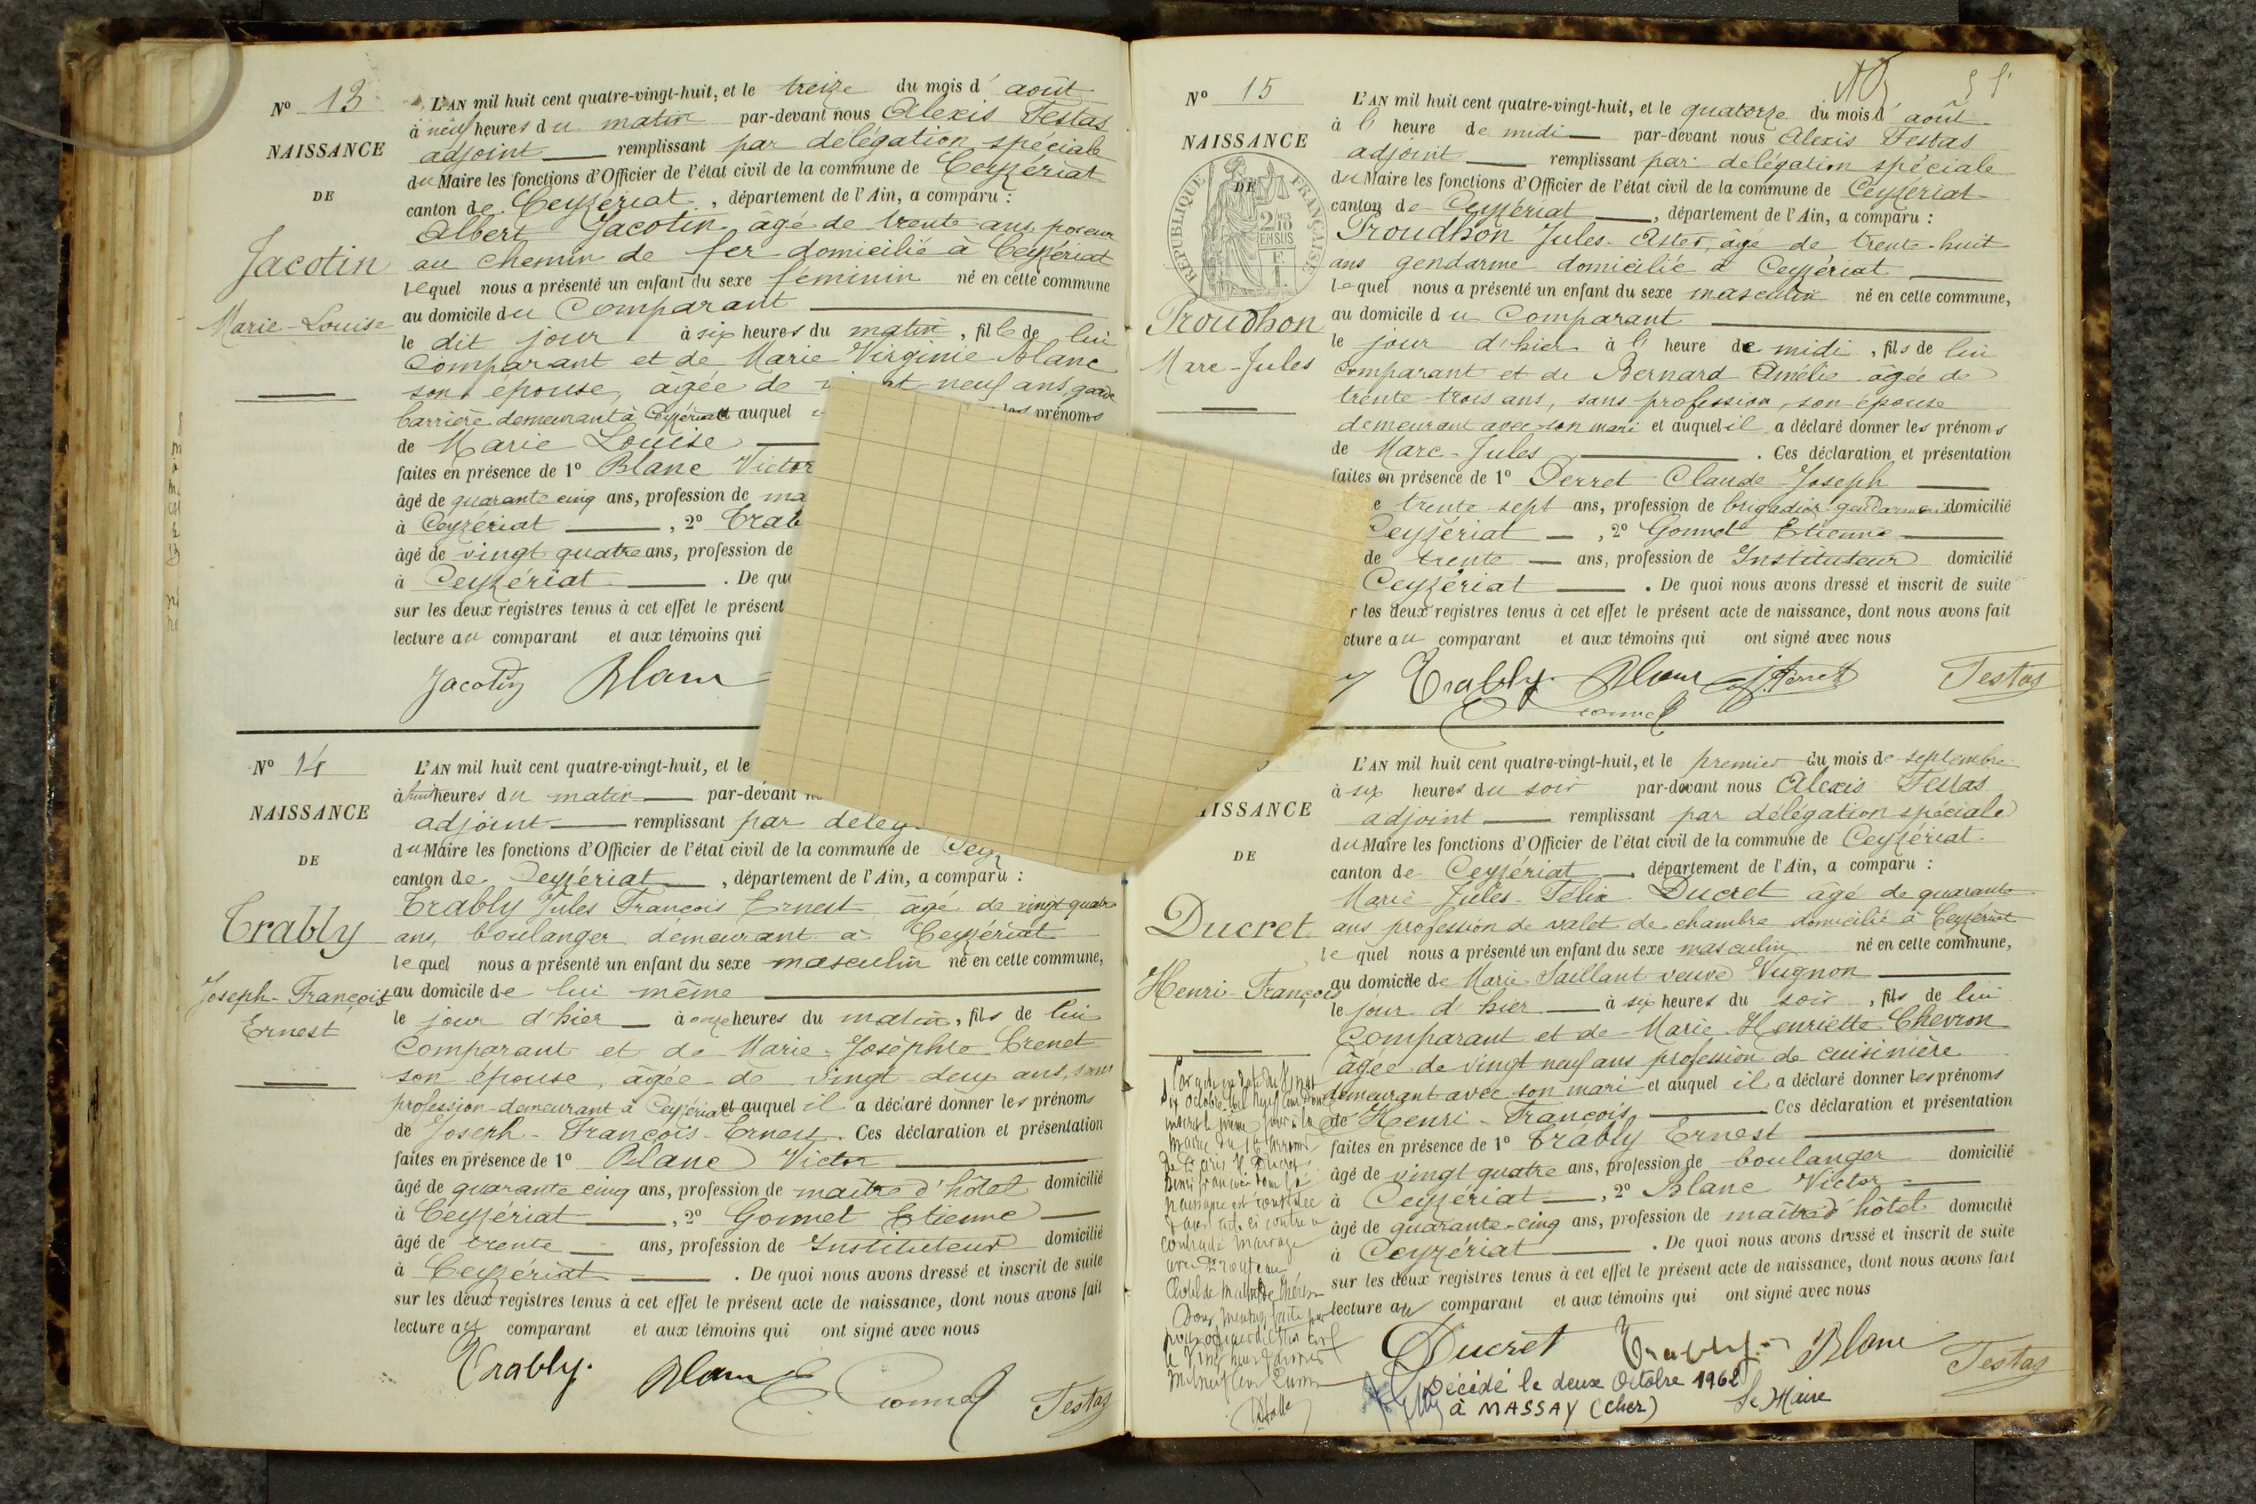 N° 13
NAISSANCE
DE
Jacotin
Marie-Louise
L'AN mil huit cent quatre-vingt-huit, et le treize du mois d'août
à neuf heures du matin par-devant nous Alexis Testas
adjoint remplissant par délégation spéciale
du Maire les fonctions d'Officier de l'état civil de la commune de Ceyzériat
canton de Ceyzériat, département de l'Ain, a comparu :
Albert Jacotin âgé de trente ans poseur
au chemin de fer domicilié à Ceyzériat
lequel nous a présenté un enfant du sexe féminin né en cette commune
au domicile du Comparant
le dit jour à six heures du matin, fille de lui
Comparant et de Marie Virginie Blanc
son épouse, âgée de neuf ans, garde
barrière demeurant à Ceyzériat auquel les prénoms
de Marie Louise
faites en présence de 1° Blanc Victor
âgé de quarante cinq ans, profession de ma
à Ceyzériat, 2° Trab
âgé de vingt quatre ans, profession de
à Ceyzériat. De quo
sur les deux registres tenus à cet effet le présent
lecture au comparant et aux témoins qui
Jacotin Blanc
N° 14
NAISSANCE
DE
Trably
Joseph-François
Ernest
L'AN mil huit cent quatre-vingt-huit, et le
à huit heures du matin par-devant
adjoint remplissant par délég
du Maire les fonctions d'Officier de l'état civil de la commune de Ceyz
canton de Ceyzériat, département de l'Ain, a comparu :
Trably Jules François Ernest âgé de vingt quatre
ans, boulanger demeurant à Ceyzériat
lequel nous a présenté un enfant du sexe masculin né en cette commune,
au domicile de lui même
le jour d'hier à onze heures du matin, fils de lui
Comparant et de Marie-Joséphte Crenet
son épouse, âgée de vingt deux ans, sans
profession demeurant à Ceyzériat et auquel il a déclaré donner les prénoms
de Joseph-François-Ernest. Ces déclaration et présentation
faites en présence de 1° Blanc Victor
âgé de quarante cinq ans, profession de maître d'hôtel domicilié
à Ceyzériat, 2° Gonnet Etienne
âgé de trente ans, profession de Instituteur domicilié
à Ceyzériat. De quoi nous avons dressé et inscrit de suite
sur les deux registres tenus à cet effet le présent acte de naissance, dont nous avons fait
lecture au comparant et aux témoins qui ont signé avec nous
Trably. Blanc Gonnet Testas
N° 15
NAISSANCE
DE
RÉPUBLIQUE FRANÇAISE
Proudhon
Marc-Jules
L'AN mil huit cent quatre-vingt-huit, et le quatorze du mois d'août
à l'heure de midi par-devant nous Alexis Testas
adjoint remplissant par délégation spéciale
du Maire les fonctions d'Officier de l'état civil de la commune de Ceyzériat
canton de Ceyzériat, département de l'Ain, a comparu :
Proudhon Jules-Aster, âgé de trente-huit
ans gendarme domicilié à Ceyzériat
lequel nous a présenté un enfant du sexe masculin né en cette commune,
au domicile du Comparant
le jour d'hier à l'heure de midi, fils de lui
comparant et de Bernard Amélie âgée de
trente-trois ans, sans profession, son épouse
demeurant avec son mari et auquel il a déclaré donner les prénoms
de Marc-Jules. Ces déclaration et présentation
faites en présence de 1° Perret Claude-Joseph
e trente-sept ans, profession de brigadier gendarmerie domicilié
Ceyzériat, 2° Gonnet Etienne
de trente ans, profession de Instituteur domicilié
Ceyzériat. De quoi nous avons dressé et inscrit de suite
r les deux registres tenus à cet effet le présent acte de naissance, dont nous avons fait
cture au comparant et aux témoins qui ont signé avec nous
Trably. Blanc Perret Testas
Gonnet
AISSANCE
DE
Ducret
Henri-François
L'AN mil huit cent quatre-vingt-huit, et le premier du mois de septembre
à six heures du soir par-devant nous Alexis Testas
adjoint remplissant par délégation spéciale
du Maire les fonctions d'Officier de l'état civil de la commune de Ceyzériat
canton de Ceyzériat, département de l'Ain, a comparu :
Marie Jules-Félix Ducret âgé de quarante
ans profession de valet de chambre domicilié à Ceyzériat
lequel nous a présenté un enfant du sexe masculin né en cette commune,
au domicile de Marie Saillant veuve Vugnon
le jour d'hier à six heures du soir, fils de lui
Comparant et de Marie-Henriette Chevron
âgée de vingt neuf ans profession de cuisinière
demeurant avec son mari et auquel il a déclaré donner les prénoms
de Henri-François. Ces déclaration et présentation
faites en présence de 1° Trably Ernest
âgé de vingt quatre ans, profession de boulanger domicilié
à Ceyzériat, 2° Blanc Victor
âgé de quarante-cinq ans, profession de maître d'hôtel domicilié
à Ceyzériat. De quoi nous avons dressé et inscrit de suite
sur les deux registres tenus à cet effet le présent acte de naissance, dont nous avons fait
lecture au comparant et aux témoins qui ont signé avec nous
Ducret Trably Blanc Testas
Décédé le deux Octobre 1962
à MASSAY (Cher) Le Maire